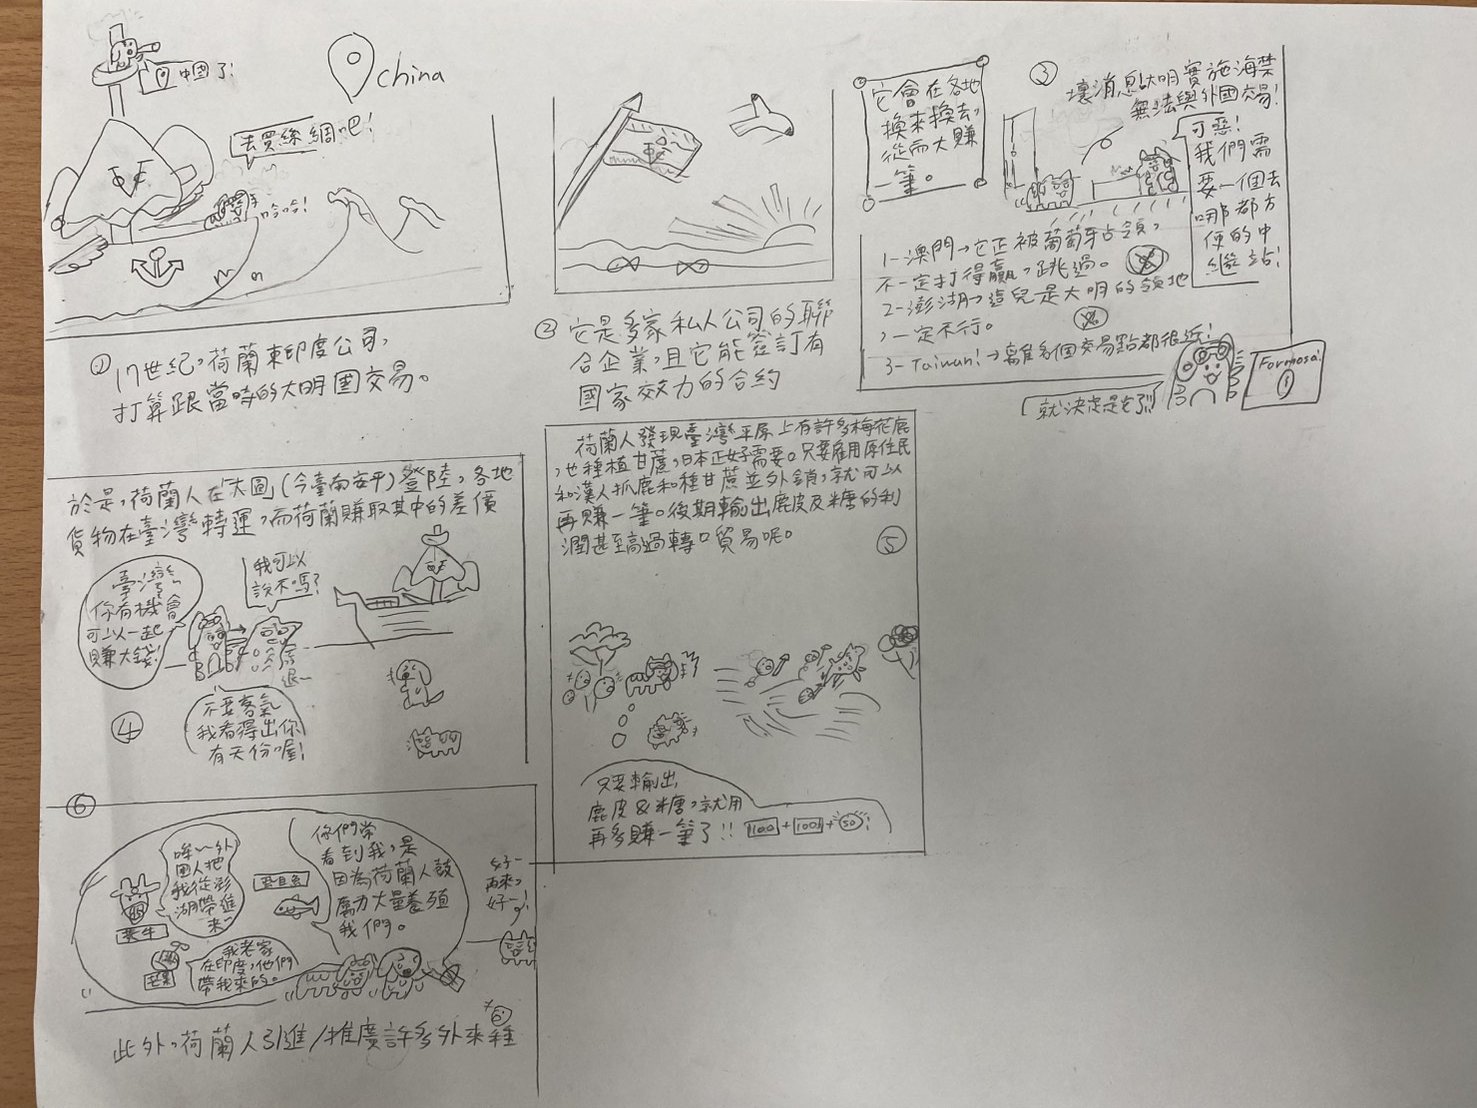 中國了!
china
去買絲綢吧!
哈哈!
① 17世紀,荷蘭東印度公司,
打算跟當時的大明國交易。
② 它是多家私人公司的聯
合企業,且它能簽訂有
國家效力的合約
它會在各地
換來換去,
從而大賺
一筆。
③ 壞消息!大明實施海禁
無法與外國交易!
可惡!
我們需
要一個去
哪都方
便的中
繼站!
1-澳門→它正被葡萄牙占領,
不一定打得贏,跳過。
2-澎湖→這兒是大明的領地
,一定不行。
3-Taiwan!→離多個交易點都很近!
就決定是它了!
Formosa!
於是,荷蘭人在「大圓」(今臺南安平)登陸,各地
貨物在臺灣轉運,而荷蘭賺取其中的差價
臺灣
你有機會
可以一起
賺大錢!
我可以
說不嗎?
不要客氣
我看得出你
有天份喔!
④
荷蘭人發現臺灣平原上有許多梅花鹿
,也種植甘蔗,日本正好需要。只要雇用原住民
和漢人抓鹿和種甘蔗並外銷,就可以
再賺一筆。後期輸出鹿皮及糖的利
潤甚至高過轉口貿易呢。
⑤
只要輸出
鹿皮&糖,就用
再多賺一筆了!!
100+100+50!
⑥
哞~外
國人把
我從澎
湖帶進
來~
黃牛
芒果
我老家
在印度,他們
帶我來的。
虱目魚
你們常
看到我,是
因為荷蘭人鼓
勵大量養殖
我們。
好~
再來,
好~!
此外,荷蘭人引進/推廣許多外來種